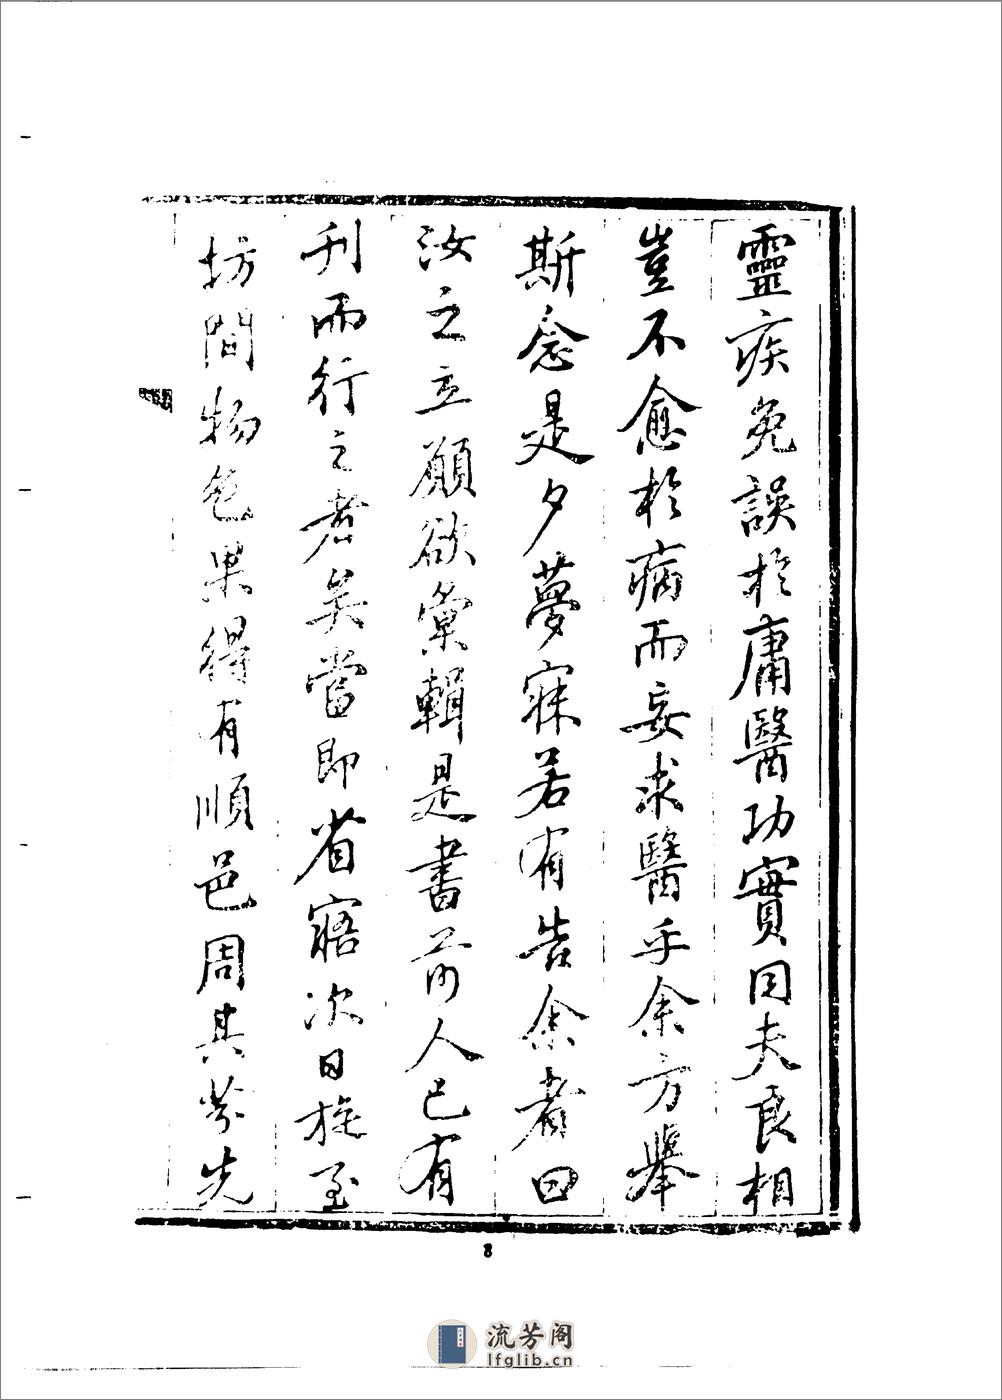 靈疾免誤於庸醫功實同夫良相
豈不愈於病而妄求醫乎余方舉
斯念是夕夢寐若有告余者曰
汝之立願欲彙輯是書前人已有
刋而行之者矣當即省寤次日旋至
坊間物色果得有順邑周其芬先
8
流芳阁
lfglib.cn